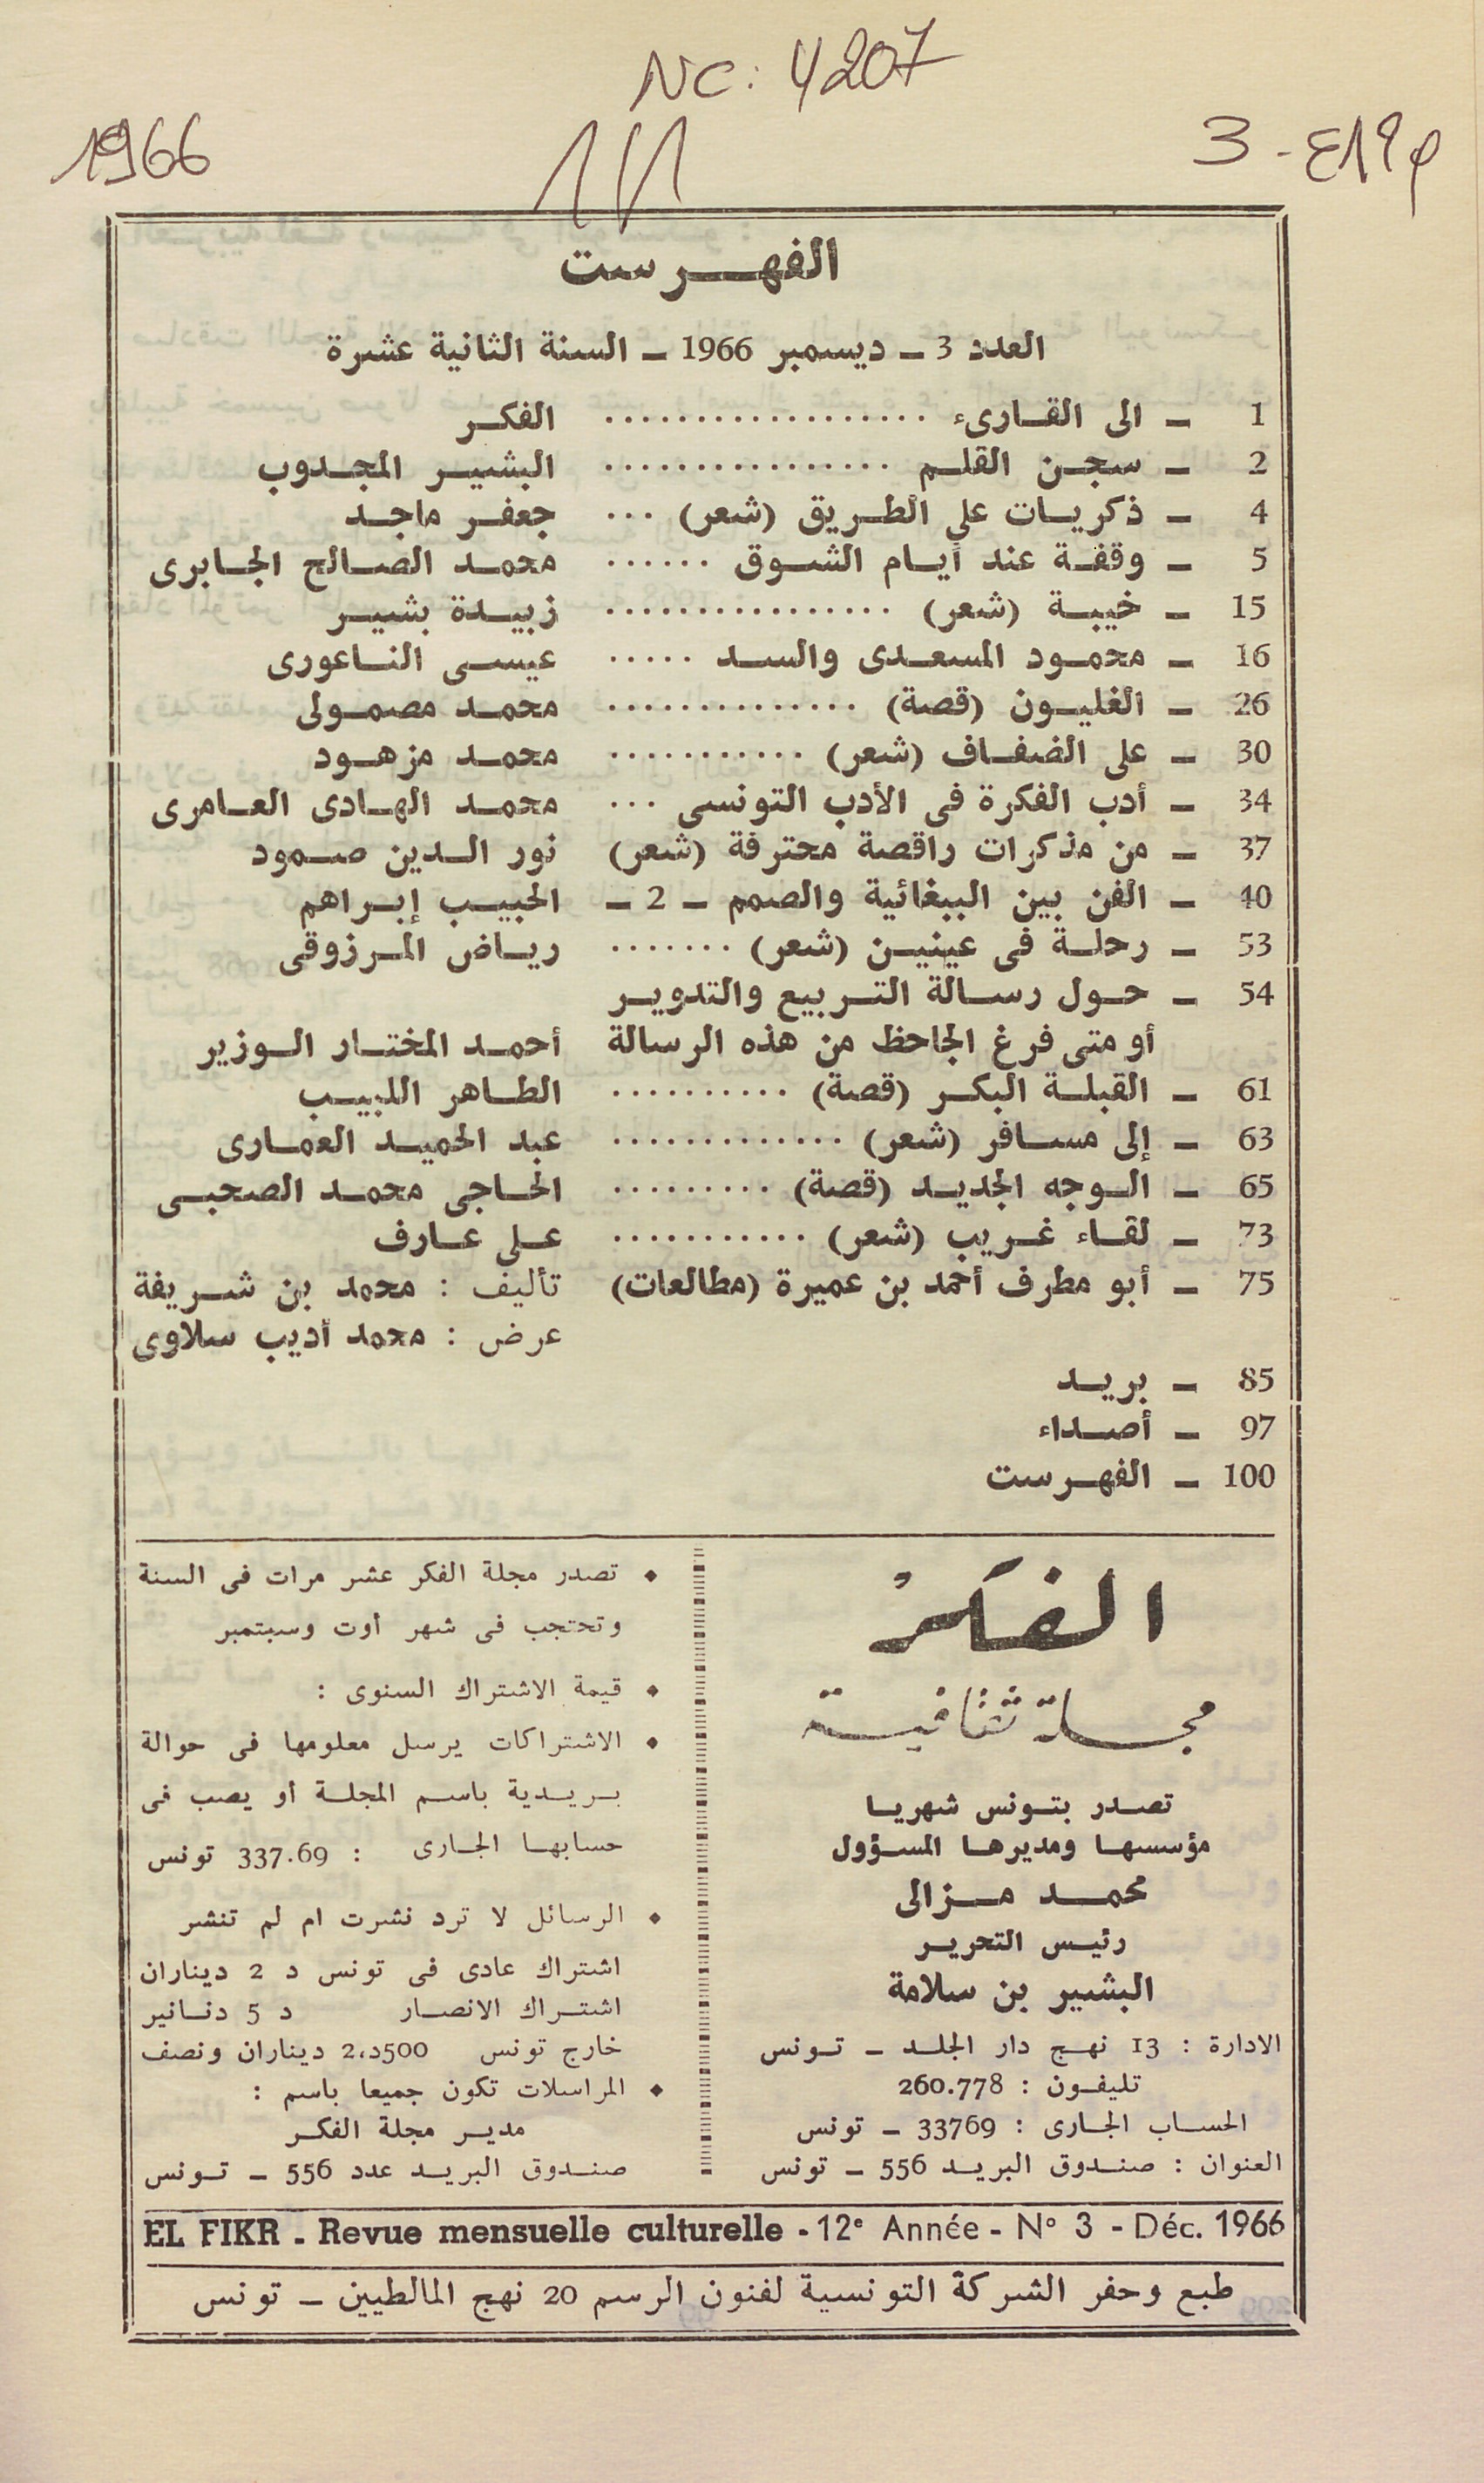 NC: 4207
1966
الفهرست
العدد 3 – ديسمبر 1966 – السنة الثانية عشرة
1 – الى القارىء .................. الفكر
2 – سجن القلم ................ البشير المجدوب
4 – ذكريات على الطريق (شعر) ... جعفر ماجد
5 – وقفة عند أيام الشوق ...... محمد الصالح الجابرى
15 – خيبة (شعر) ................ زبيدة بشير
16 – محمود المسعدى والسد ..... عيسى الناعورى
26 – الغليون (قصة) .............. محمد مصمولى
30 – على الضفاف (شعر) ........... محمد مزهود
34 – أدب الفكرة فى الأدب التونسى ... محمد الهادى العامرى
37 – من مذكرات راقصة محترفة (شعر) نور الدين صمود
40 – الفن بين الببغائية والصمم – 2 – الحبيب إبراهم
53 – رحلة فى عينين (شعر) ....... رياض المرزوقى
54 – حول رسالة التربيع والتدوير
أو متى فرغ الجاحظ من هذه الرسالة أحمد المختار الوزير
61 – القبلة البكر (قصة) .......... الطاهر اللبيب
63 – إلى مسافر (شعر) ............. عبد الحميد العمارى
65 – الوجه الجديد (قصة) ......... الحاجى محمد الصحبى
73 – لقاء غريب (شعر) ........... على عارف
75 – أبو مطرف أحمد بن عميرة (مطالعات) تأليف : محمد بن شريفة
عرض : محمد أديب سلاوى
85 – بريد
97 – أصداء
100 – الفهرست
الفكر
مجلة ثقافية
تصدر بتونس شهريا
مؤسسها ومديرها المسؤول
محمد مزالى
رئيس التحرير
البشير بن سلامة
الادارة : 13 نهج دار الجلد – تونس
تليفون : 260.778
الحساب الجارى : 33769 – تونس
العنوان : صندوق البريد 556 – تونس
• تصدر مجلة الفكر عشر مرات فى السنة
وتحتجب فى شهر أوت وسبتمبر
• قيمة الاشتراك السنوى :
• الاشتراكات يرسل معلومها فى حوالة
بريدية باسم المجلة أو يصب فى
حسابها الجارى : 337.69 تونس
• الرسائل لا ترد نشرت ام لم تنشر
اشتراك عادى فى تونس د 2 ديناران
اشتراك الانصار د 5 دنانير
خارج تونس 500د،2 ديناران ونصف
• المراسلات تكون جميعا باسم :
مدير مجلة الفكر
صندوق البريد عدد 556 – تونس
EL FIKR - Revue mensuelle culturelle - 12e Année - N° 3 - Déc. 1966
طبع وحفر الشركة التونسية لفنون الرسم 20 نهج المالطيين – تونس